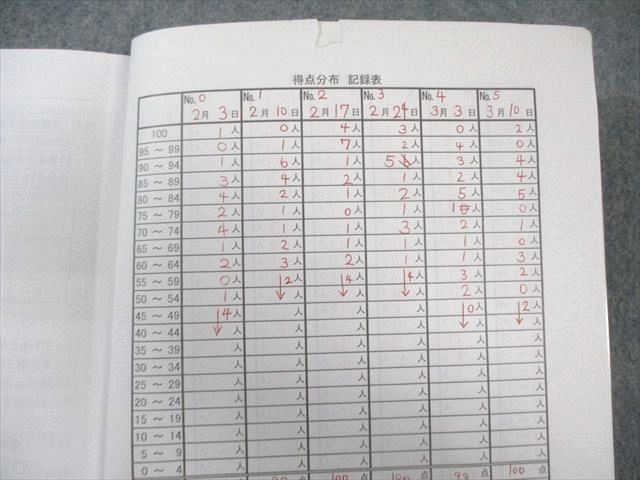 得点分布 記録表
No. 0 No. 1 No. 2 No. 3 No. 4 No. 5
2月 3日 2月 10日 2月 17日 2月 24日 3月 3日 3月 10日
100 1人 0人 4人 3人 0人 2人
95 ～ 99 0人 1人 7人 2人 4人 0人
90 ～ 94 1人 6人 1人 5人 3人 4人
85 ～ 89 3人 4人 2人 1人 2人 4人
80 ～ 84 4人 2人 1人 2人 5人 5人
75 ～ 79 2人 1人 0人 1人 1人 0人
70 ～ 74 4人 1人 1人 3人 2人 1人
65 ～ 69 1人 2人 1人 1人 1人 0人
60 ～ 64 2人 3人 2人 1人 1人 3人
55 ～ 59 0人 2人 4人 4人 3人 2人
50 ～ 54 1人 人 人 人 2人 0人
45 ～ 49 4人 人 人 人 0人 2人
40 ～ 44 人 人 人 人 人 人
35 ～ 39 人 人 人 人 人 人
30 ～ 34 人 人 人 人 人 人
25 ～ 29 人 人 人 人 人 人
20 ～ 24 人 人 人 人 人 人
15 ～ 19 人 人 人 人 人 人
10 ～ 14 人 人 人 人 人 人
5 ～ 9 人 人 人 人 人 人
0 ～ 4 人 人 人 人 人 人
100 点 100 点 98 点 100 点